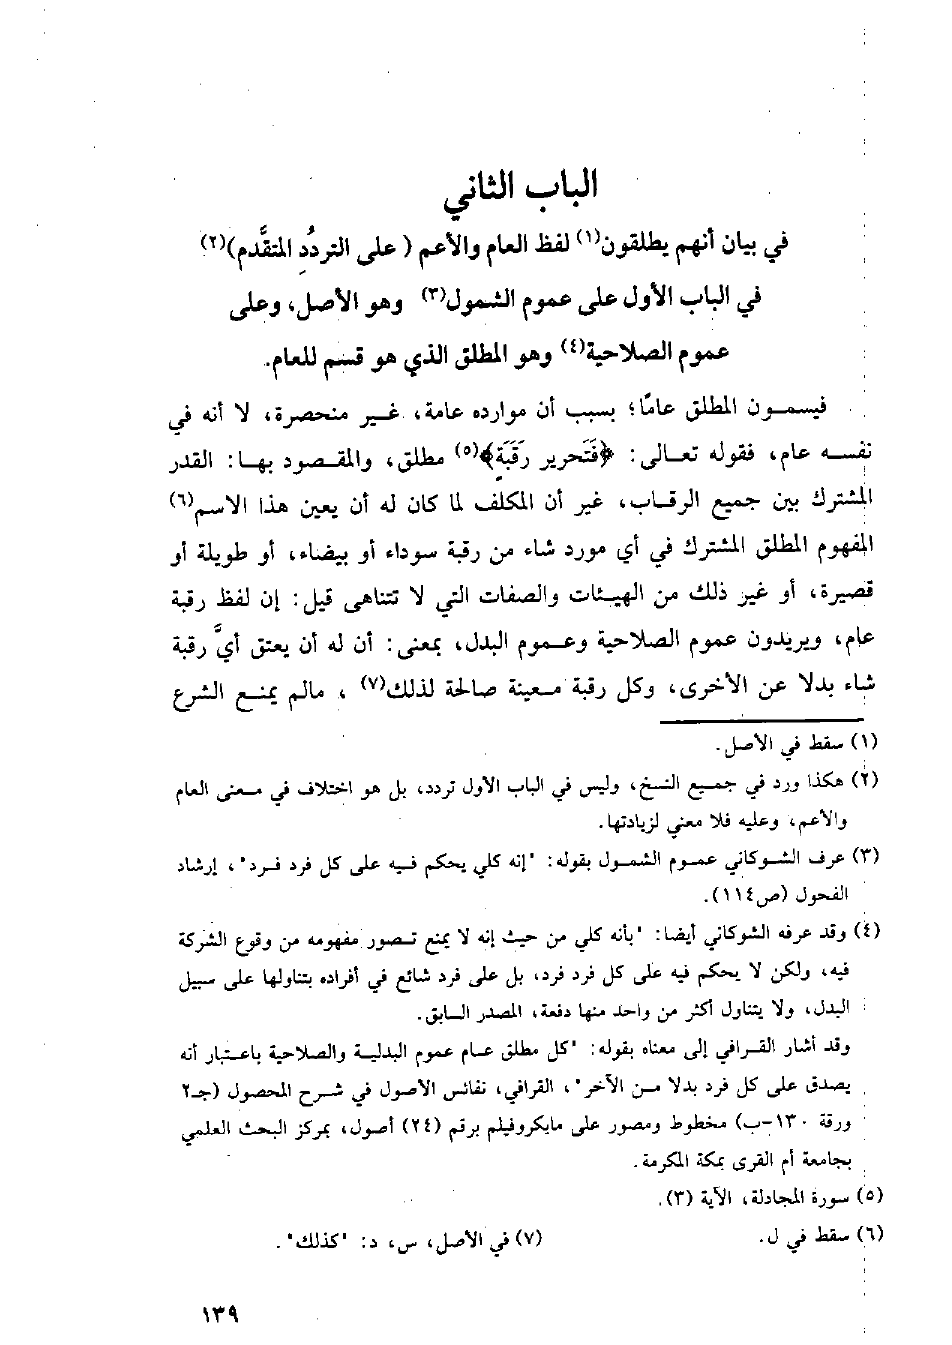 الباب الثاني
في بيان أنهم يطلقون(١) لفظ العام والأعم ( على التردُدِ المتقَّدم)(٢)
في الباب الأول على عموم الشمول(٣) وهو الأصل، وعلى
عموم الصلاحية(٤) وهو المطلق الذي هو قسم للعام.
فيسمون المطلق عامًا؛ بسبب أن موارده عامة، غير منحصرة، لا أنه في
نفسه عام، فقوله تعالى: ﴿فَتَحرير رَقَبَةٍ﴾(٥) مطلق، والمقصود بها: القدر
المشترك بين جميع الرقاب، غير أن المكلف لما كان له أن يعين هذا الاسم(٦)
المفهوم المطلق المشترك في أي مورد شاء من رقبة سوداء أو بيضاء، أو طويلة أو
قصيرة، أو غير ذلك من الهيئات والصفات التي لا تتناهى قيل: إن لفظ رقبة
عام، ويريدون عموم الصلاحية وعموم البدل، بمعنى: أن له أن يعتق أيَّ رقبة
شاء بدلا عن الأخرى، وكل رقبة معينة صالحة لذلك(٧) ، مالم يمنع الشرع
(١) سقط في الأصل.
(٢) هكذا ورد في جميع النسخ، وليس في الباب الأول تردد، بل هو اختلاف في معنى العام
والأعم، وعليه فلا معني لزيادتها.
(٣) عرف الشوكاني عموم الشمول بقوله: "إنه كلي يحكم فيه على كل فرد فرد"، إرشاد
الفحول (ص١١٤).
(٤) وقد عرفه الشوكاني أيضا: "بأنه كلي من حيث إنه لا يمنع تصور مفهومه من وقوع الشركة
فيه، ولكن لا يحكم فيه على كل فرد فرد، بل على فرد شائع في أفراده يتناولها على سبيل
البدل، ولا يتناول أكثر من واحد منها دفعة، المصدر السابق.
وقد أشار القرافي إلى معناه بقوله: "كل مطلق عام عموم البدلية والصلاحية باعتبار أنه
يصدق على كل فرد بدلا من الآخر"، القرافي، نفائس الأصول في شرح المحصول (جـ٢
ورقة ١٣٠-ب) مخطوط ومصور على مايكروفيلم برقم (٢٤) أصول، بمركز البحث العلمي
بجامعة أم القرى بمكة المكرمة.
(٥) سورة المجادلة، الآية (٣).
(٦) سقط في ل. (٧) في الأصل، س، د: "كذلك".
١٣٩